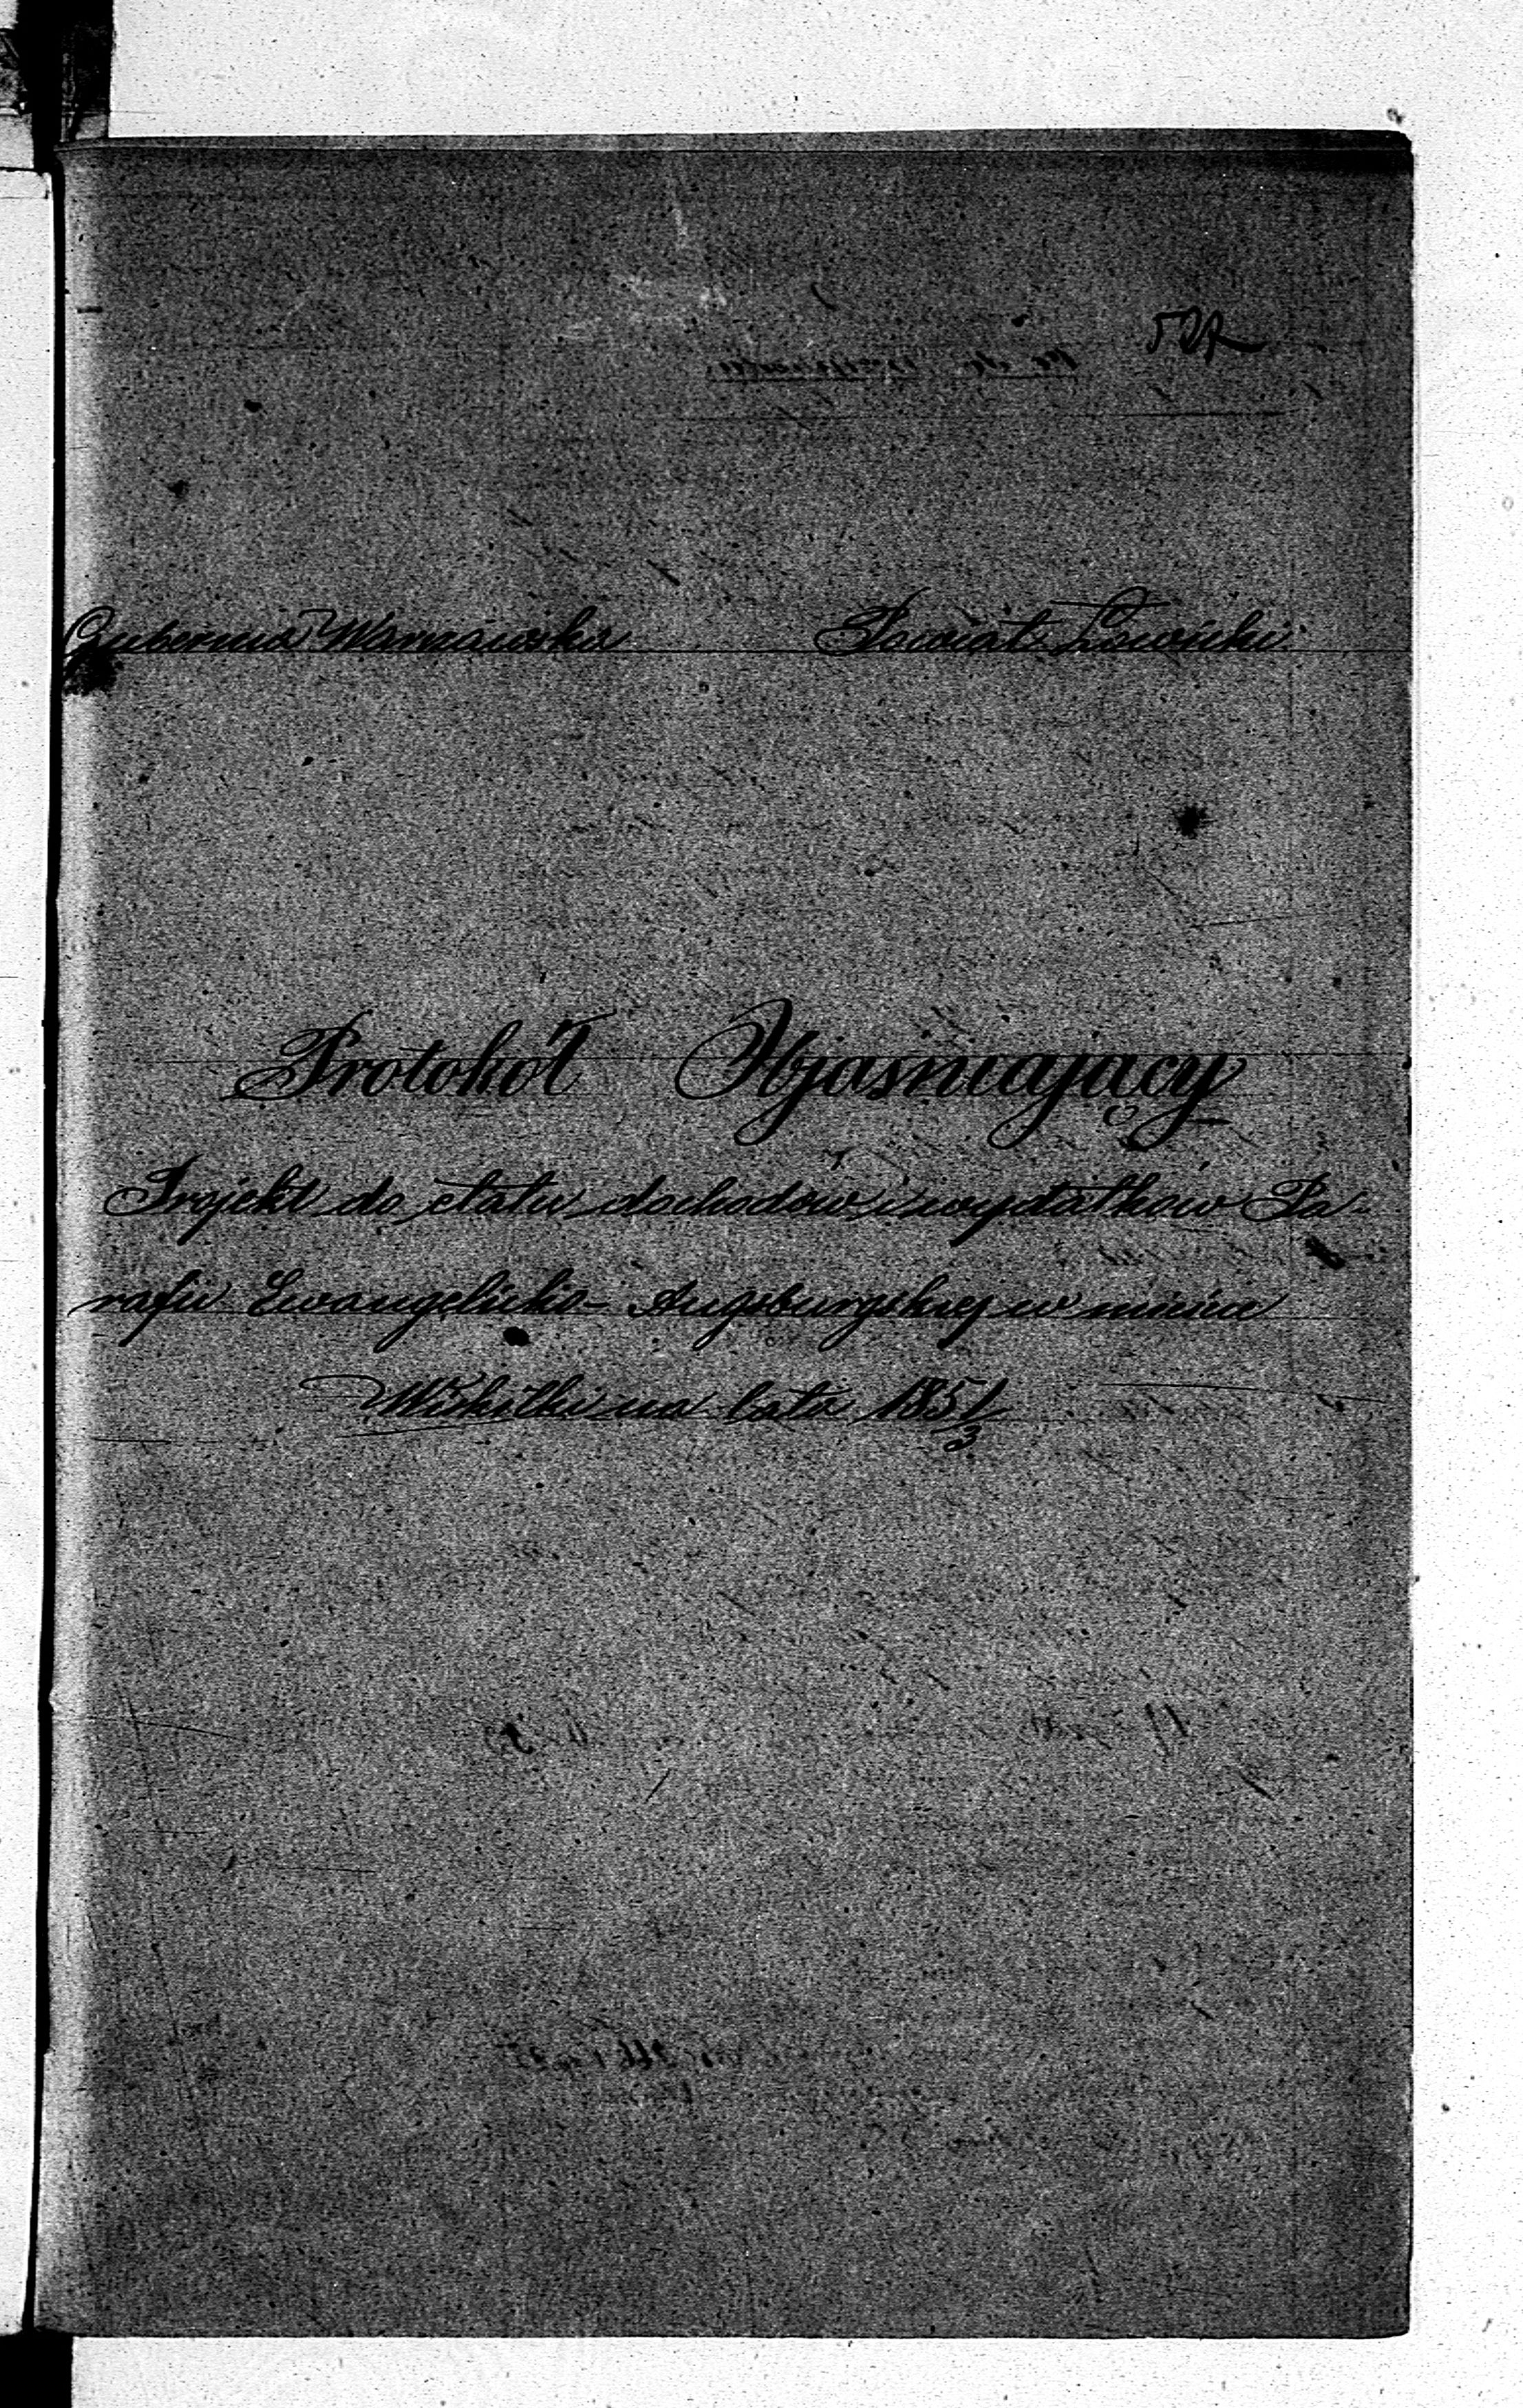 Gubernia Warszawska Powiat Łowicki
Protokół Objasniający
Projekt do etatu dochodów i wydatków Pa-
rafii Ewangelicko-Augsburgskiej w mieście
Wiskitki na lata 1851/3